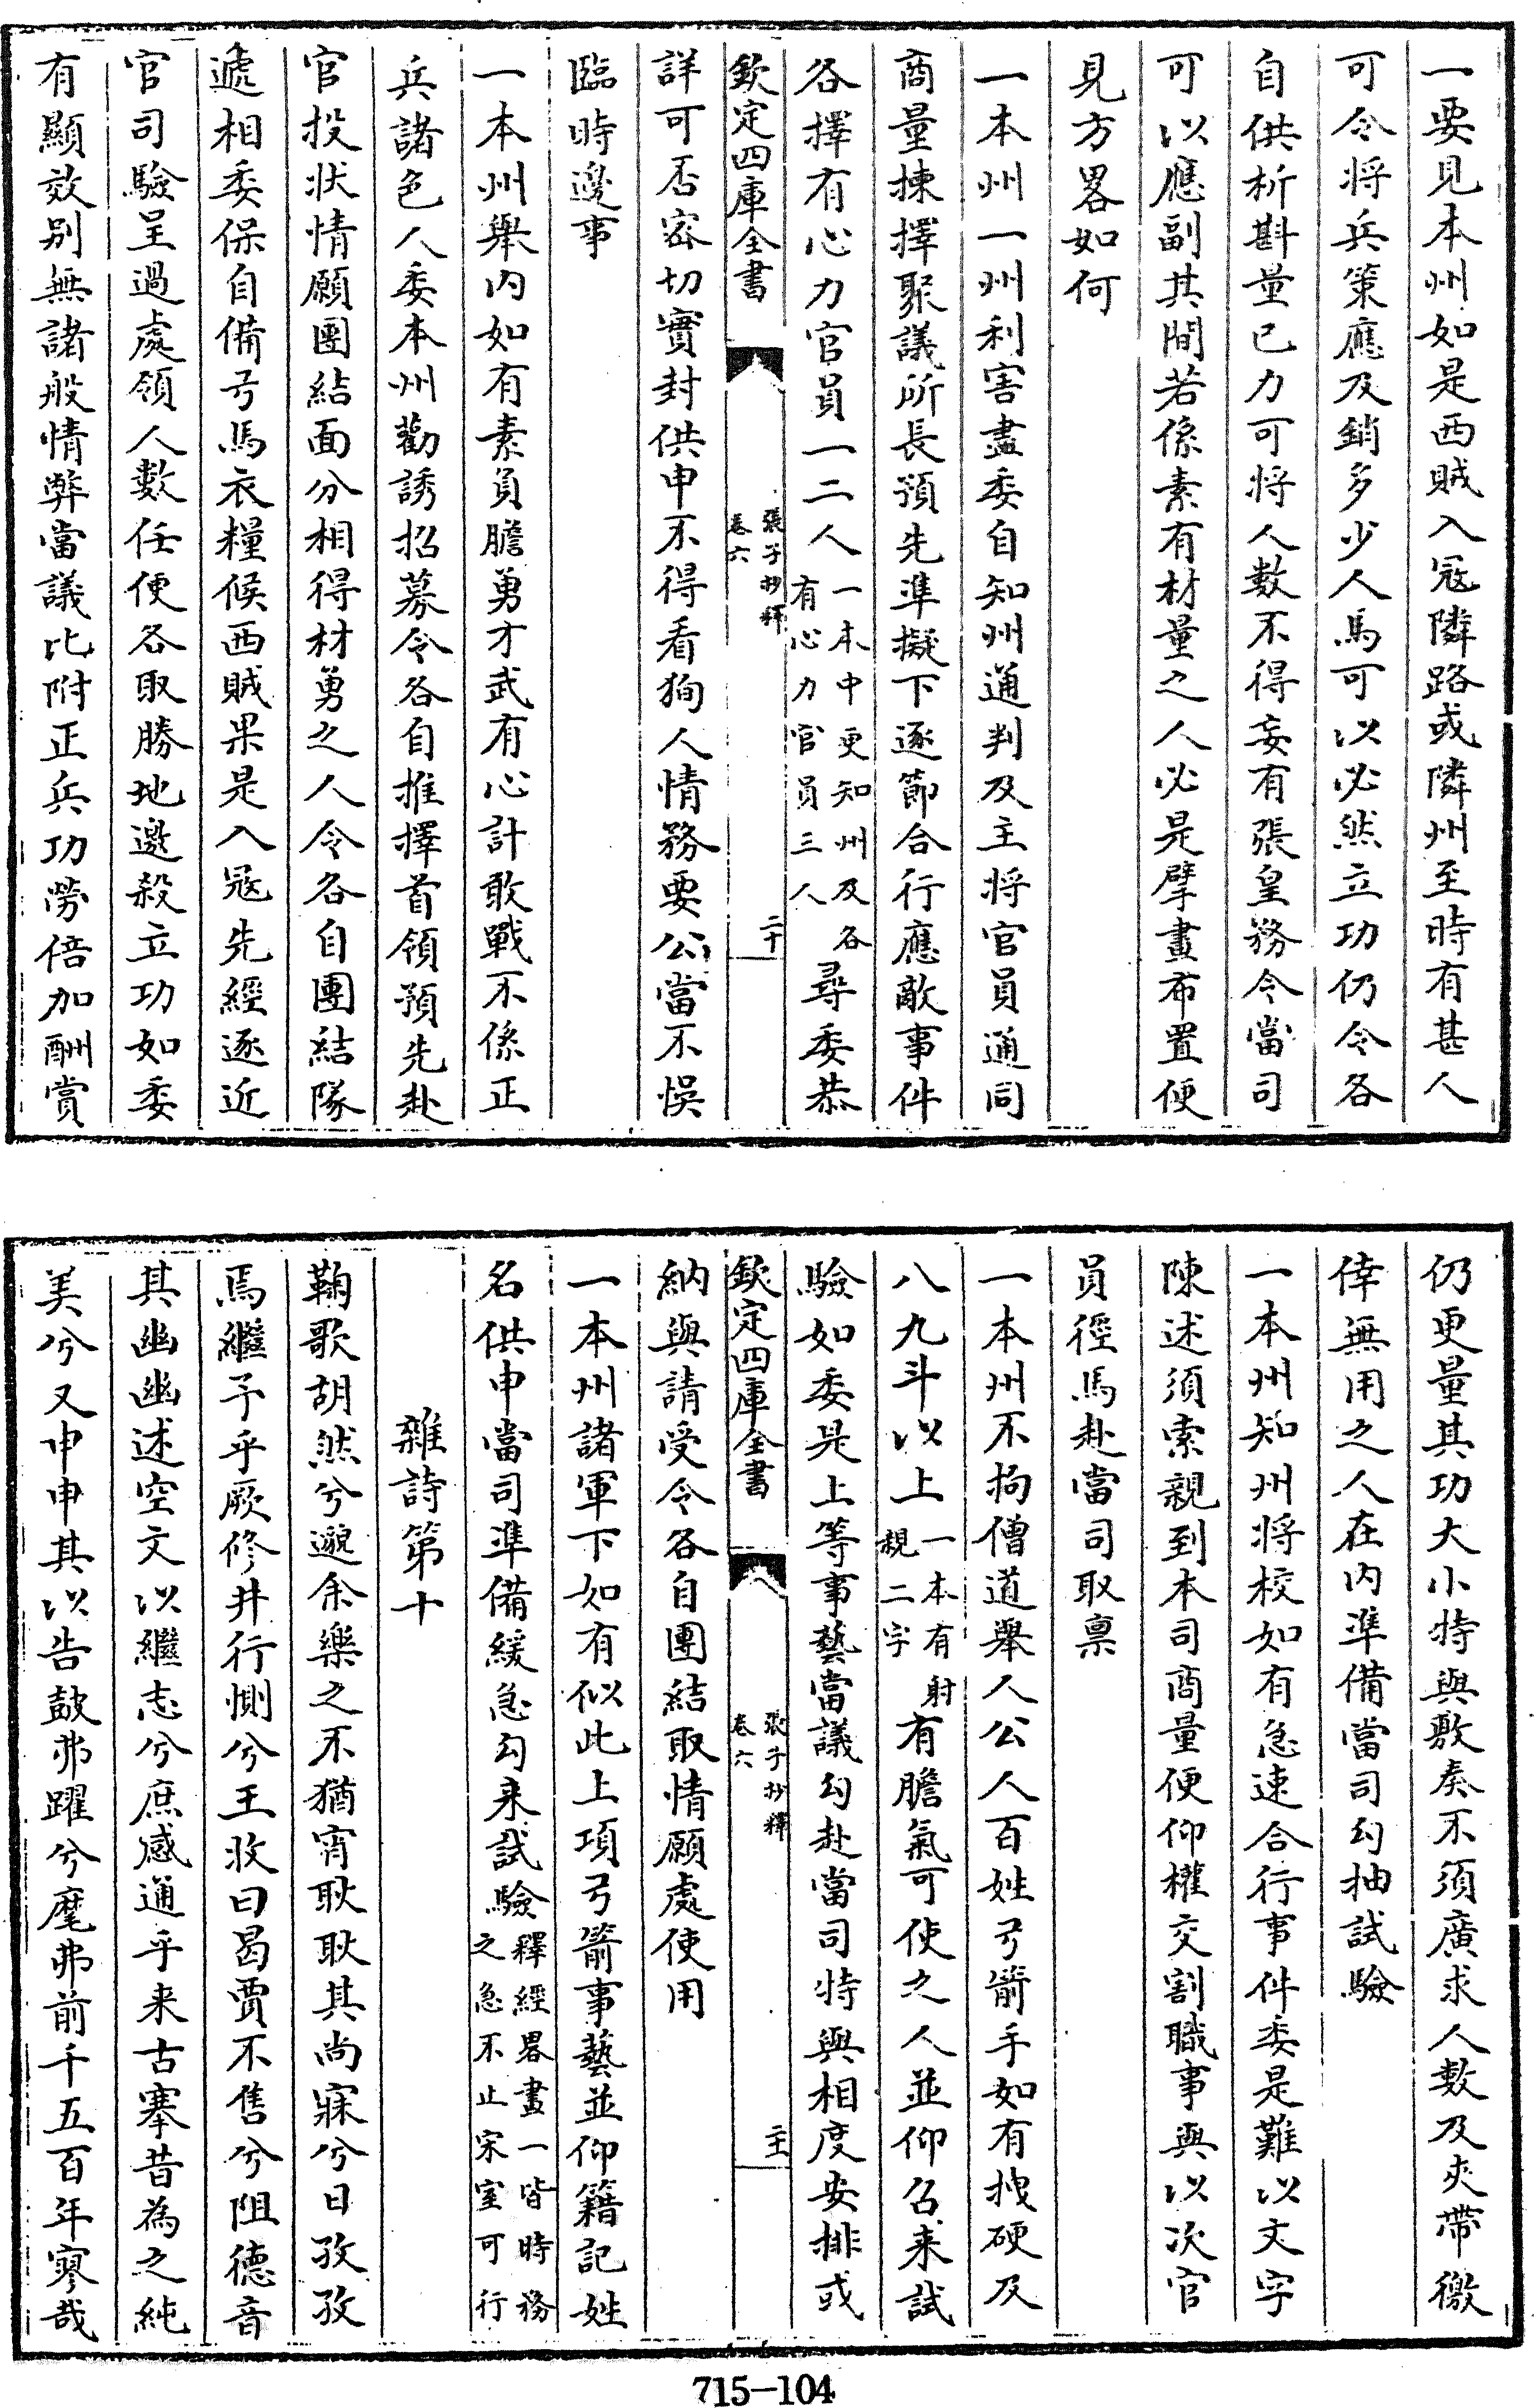 一要見本州如是西賊入冦隣路或隣州至時有甚人
可令将兵策應及銷多少人馬可以必然立功仍令各
自供析斟量已力可将人數不得妄有張皇務令當司
可以應副其間若係素有材量之人必是擘畫布置便
見方畧如何
一本州一州利害盡委自知州通判及主将官員通同
商量揀擇聚議所長預先凖擬下逐節合行應敵事件
各擇有心力官員一二人一本中更知州及各有心力官員三人尋委恭
欽定四庫全書 張子抄釋 卷六 二十
詳可否密切實封供申不得看徇人情務要公當不悞
臨時邊事
一本州舉内如有素負膽勇才武有心計敢戰不係正
兵諸色人委本州勸誘招募令各自推擇首領預先赴
官投状情願團結面分相得材勇之人令各自團結隊
遞相委保自備弓馬衣糧候西賊果是入冦先經逐近
官司驗呈過處領人數任便各取勝地邀殺立功如委
有顯效别無諸般情弊當議比附正兵功勞倍加酬賞
仍更量其功大小特與敷奏不須廣求人數及夾帶徼
倖無用之人在内凖備當司勾抽試驗
一本州知州将校如有急速合行事件委是難以文字
陳述須索親到本司商量便仰權交割職事與以次官
員徑馬赴當司取禀
一本州不拘僧道舉人公人百姓弓箭手如有拽硬及
八九斗以上一本有射親二字有膽氣可使之人並仰召来試
驗如委是上等事藝當議勾赴當司特與相度安排或
欽定四庫全書 張子抄釋 卷六 二主
納與請受令各自團結取情願處使用
一本州諸軍下如有似此上項弓箭事藝並仰籍記姓
名供申當司凖備緩急勾来試驗釋經畧畫一皆時務之急不止宋室可行
雜詩第十
鞠歌胡然兮邈余樂之不猶宵耿耿其尚寐兮日孜孜
焉繼予乎厥修井行惻兮王收曰曷賈不售兮阻德音
其幽幽述空文以繼志兮庶感通乎来古搴昔為之純
美兮又申申其以告鼓弗躍兮麾弗前千五百年寥哉
715-104